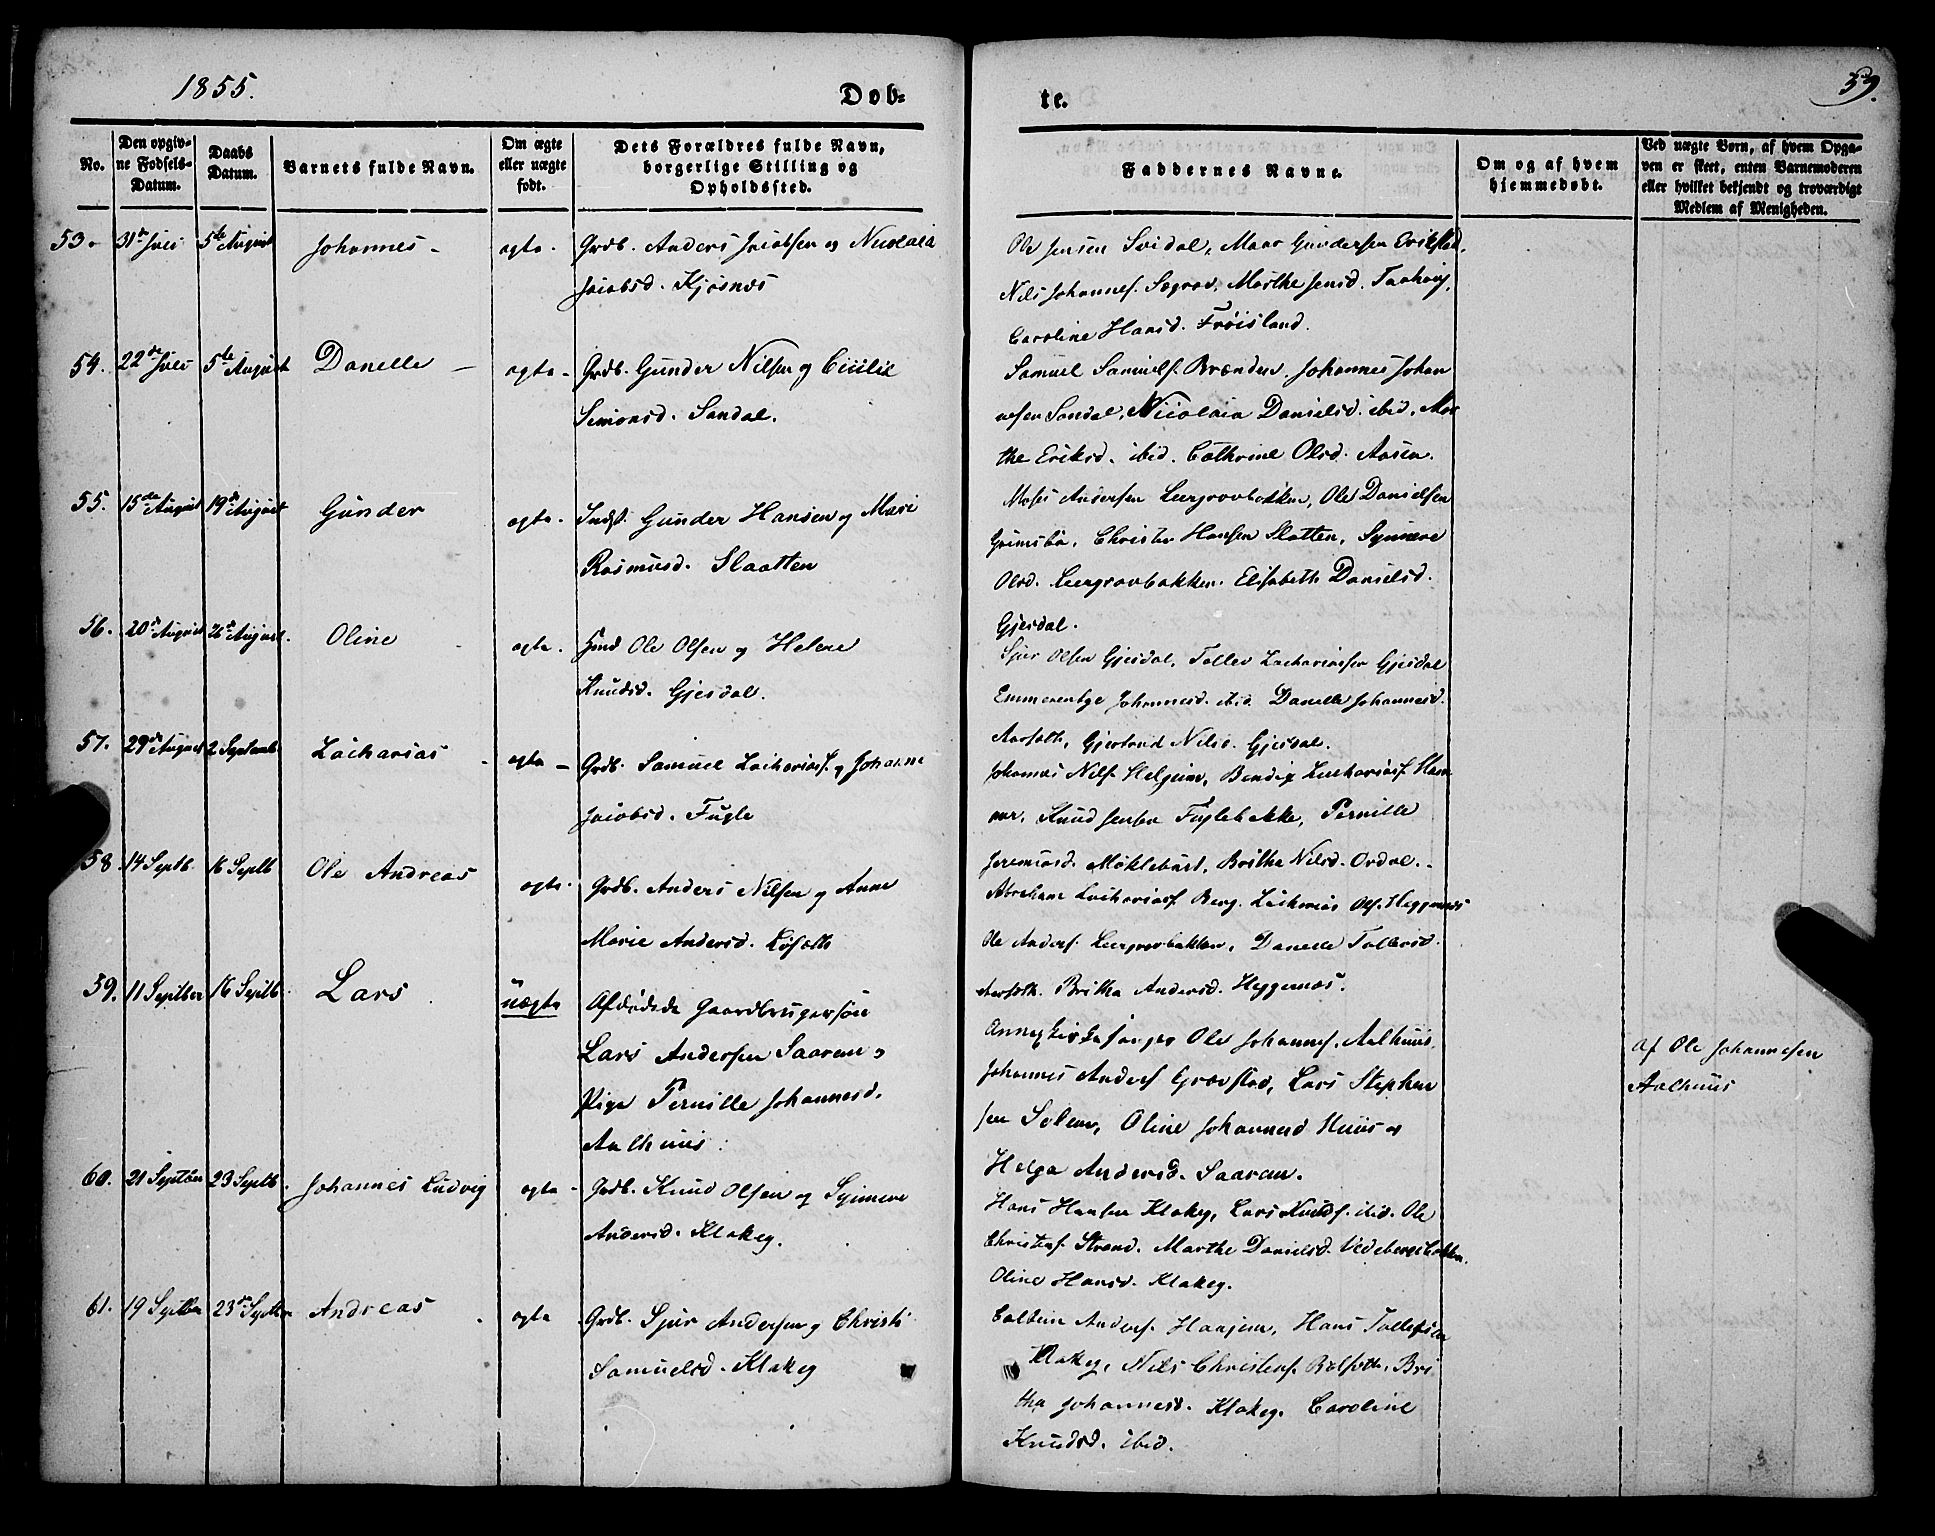 1855.
Døb-
te.
59.
No.
Den opgiv-
ne Fødsels-
Datum.
Daabs
Datum.
Barnets fulde Navn.
Om ægte
eller uægte
født.
Dets Forældres fulde Navn,
borgerlige Stilling og
Opholdssted.
Faddernes Navne.
Om og af hvem
hjemmedøbt.
Ved uægte Børn, af hvem Opga-
ven er skeet, enten Barnemoderen
eller hvilket bekjendt og troværdigt
Medlem af Menigheden.
53. 31te Juli 5te August Johannes - ægte. Grdb. Anders Jacobsen og Nicolaia
Jacobsd. Kjøsnæs
Ole Jensen Svidal, Mads Gundersen Erikstad,
Nils Johannes. Søgrov, Marthe Jensd.
Caroline Hansd. Frøisland.
54. 22de Juli 5te August Danelle - ægte - Grdb. Gunder Nilsen og Cicilie
Simonsd. Sandal.
Samuel Samuels. Brænden, Johannes Johan
nesen Sandal, Nicolaia Danielsd. ibid, Mar
the Eriksd. ibid. Cathrine Olsd. Aasen.
55. 15de August 19de August Gunder ægte. Indst. Gunder Hansen og Mari
Rasmusd. Slaatten
Moses Andersen Leergrovbakken, Ole Danielsen
Grimsbø, Christen Hansen Slatten, Synneve
Olsd. Leergrovbakken. Elisabeth Danielsd.
Gjesdal.
56. 20de August 26de August. Oline ægte. Ole Olsen og Helene
Knudsd. Gjesdal.
Sjur Olsen Gjesdal, Tollev Zachariasen Gjesdal
Emmerentze Johannesd. ibid. Danelle Johannesd.
Aarseth, Gjertrud Nilsd. Gjesdal.
57. 29de August 2 Septemb Zacharias - ægte - Grdb. Samuel Zacharias. og Johanne
Jacobsd. Fugle
Johannes Nils. Helgeim, Bendix Zacharias. Ham
mer, Knud Jensen Fuglebakke, Pernille
Jeremiasd. Møklebust, Brithe Nilsd. Ordal.
58 14 Septb. 16 Septb Ole Andreas ægte. Grdb. Anders Nilsen og Anne
Marie Andersd. Løseth
Abraham Zacharias. Berg, Zacharias Ols. Heggenæs
Ole Anders. Leergrovbakken, Danelle Tollevsd.
Aarseth. Britha Andersd. Heggenæs.
59. 11 Septber 16 Septb. Lars uægte Afdøde Gaardbrugersøn
Lars Andersen Saaren og
Pige Pernille Johannesd.
Aalhuus.
Annexkirkesanger Ole Johannes. Aalhuus,
Johannes Anders Grovstad, Lars Stephen
sen Solem, Oline Johannesd Huus og
Helga Andersd. Saaren.
af Ole Johannesen
Aalhuus
60. 21 Septber 23 Septb. Johannes Ludvig ægte - Grdb. Knud Olsen og Synneve
Andersd. Klakeg.
Hans Hansen Klakeg, Lars Knuds. ibid. Ole
Christens. Strand. Marthe Danielsd. Vedebergsbakken.
Oline Hansd. Klakeg.
61. 19 Septber 23de Septbr Andreas. ægte Grdb. Sjur Andersen og Christi
Samuelsd. Klakeg
Anders. Haajem, Hans Tollefsen
Klakeg, Nils Christens. Bolseth, Bri
tha Johannesd. Klakeg. Caroline
Knudsd. ibid.